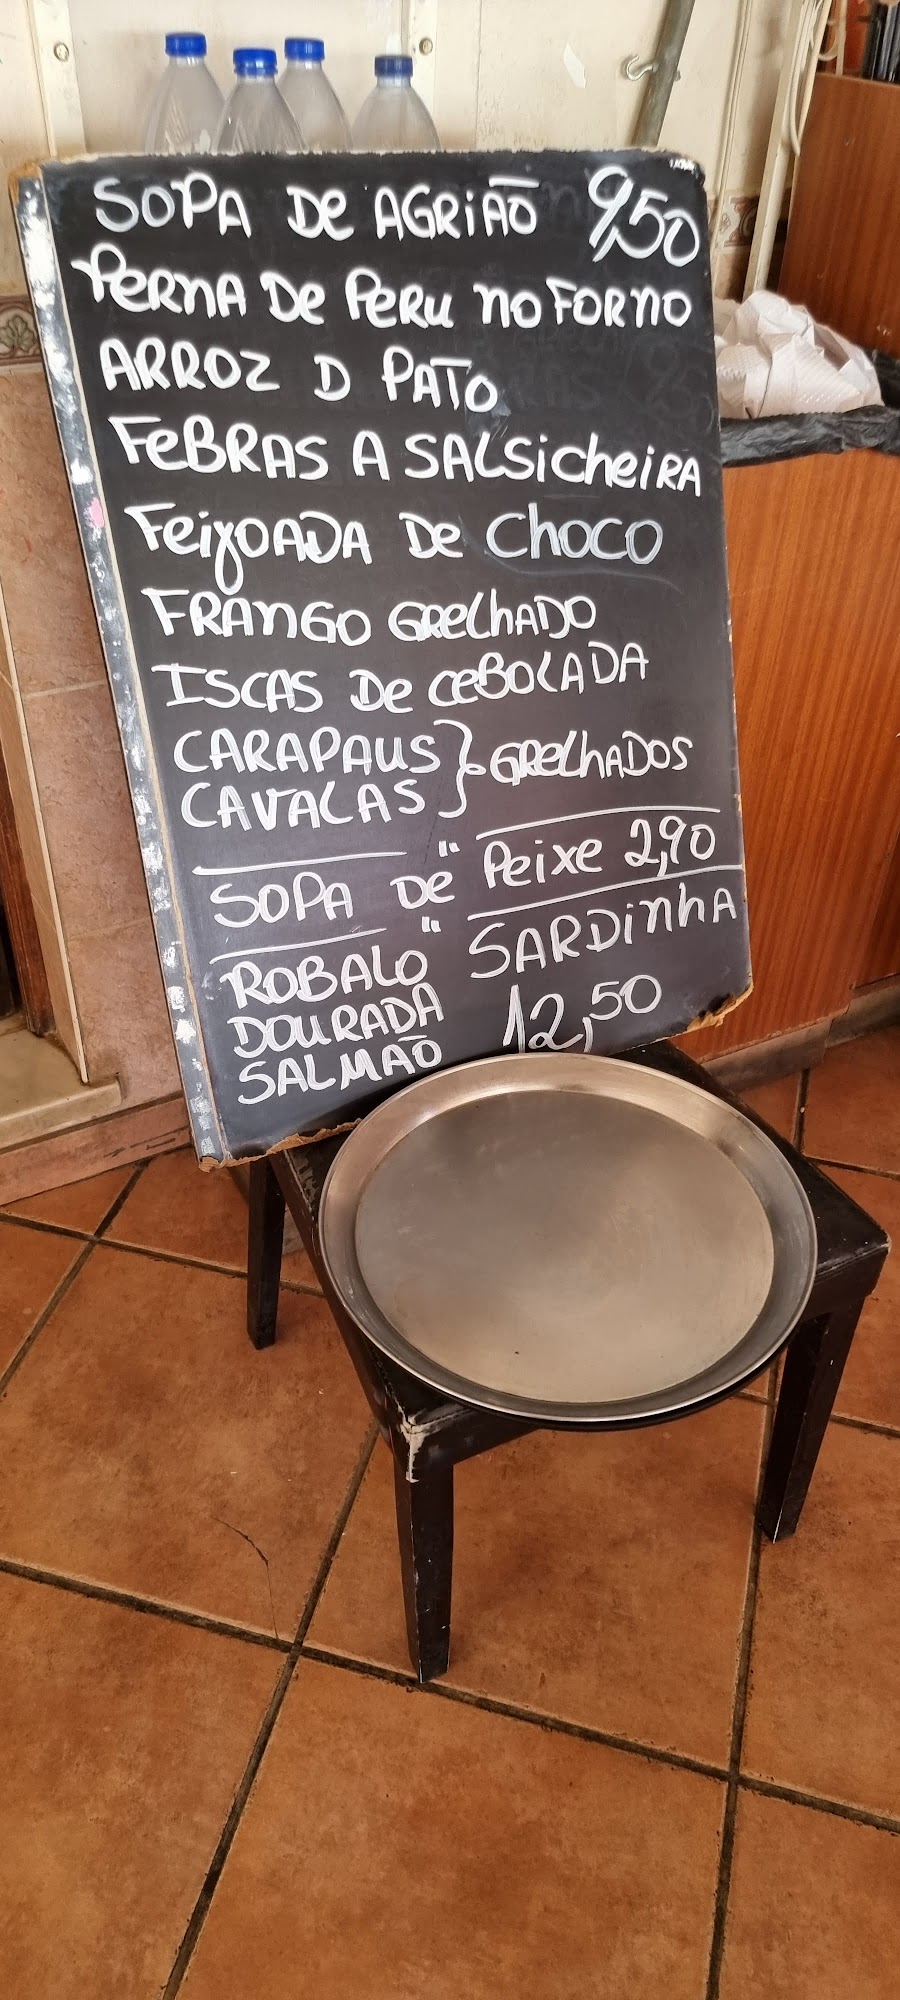 SOPA De AGRIÃO 9,50
PERNA De PERU no FORNO
ARROZ D PATO
FeBRAS A SALSicheiRA
FeijOADA De Choco
FRANGO GRelhADO
ISCAS De CEBOLADA
CARAPAUS } GRelhADOS
CAVALAS
SOPA De "Peixe 2,90
ROBALO " SARDinhA
DOURADA 12,50
SALMAÕ